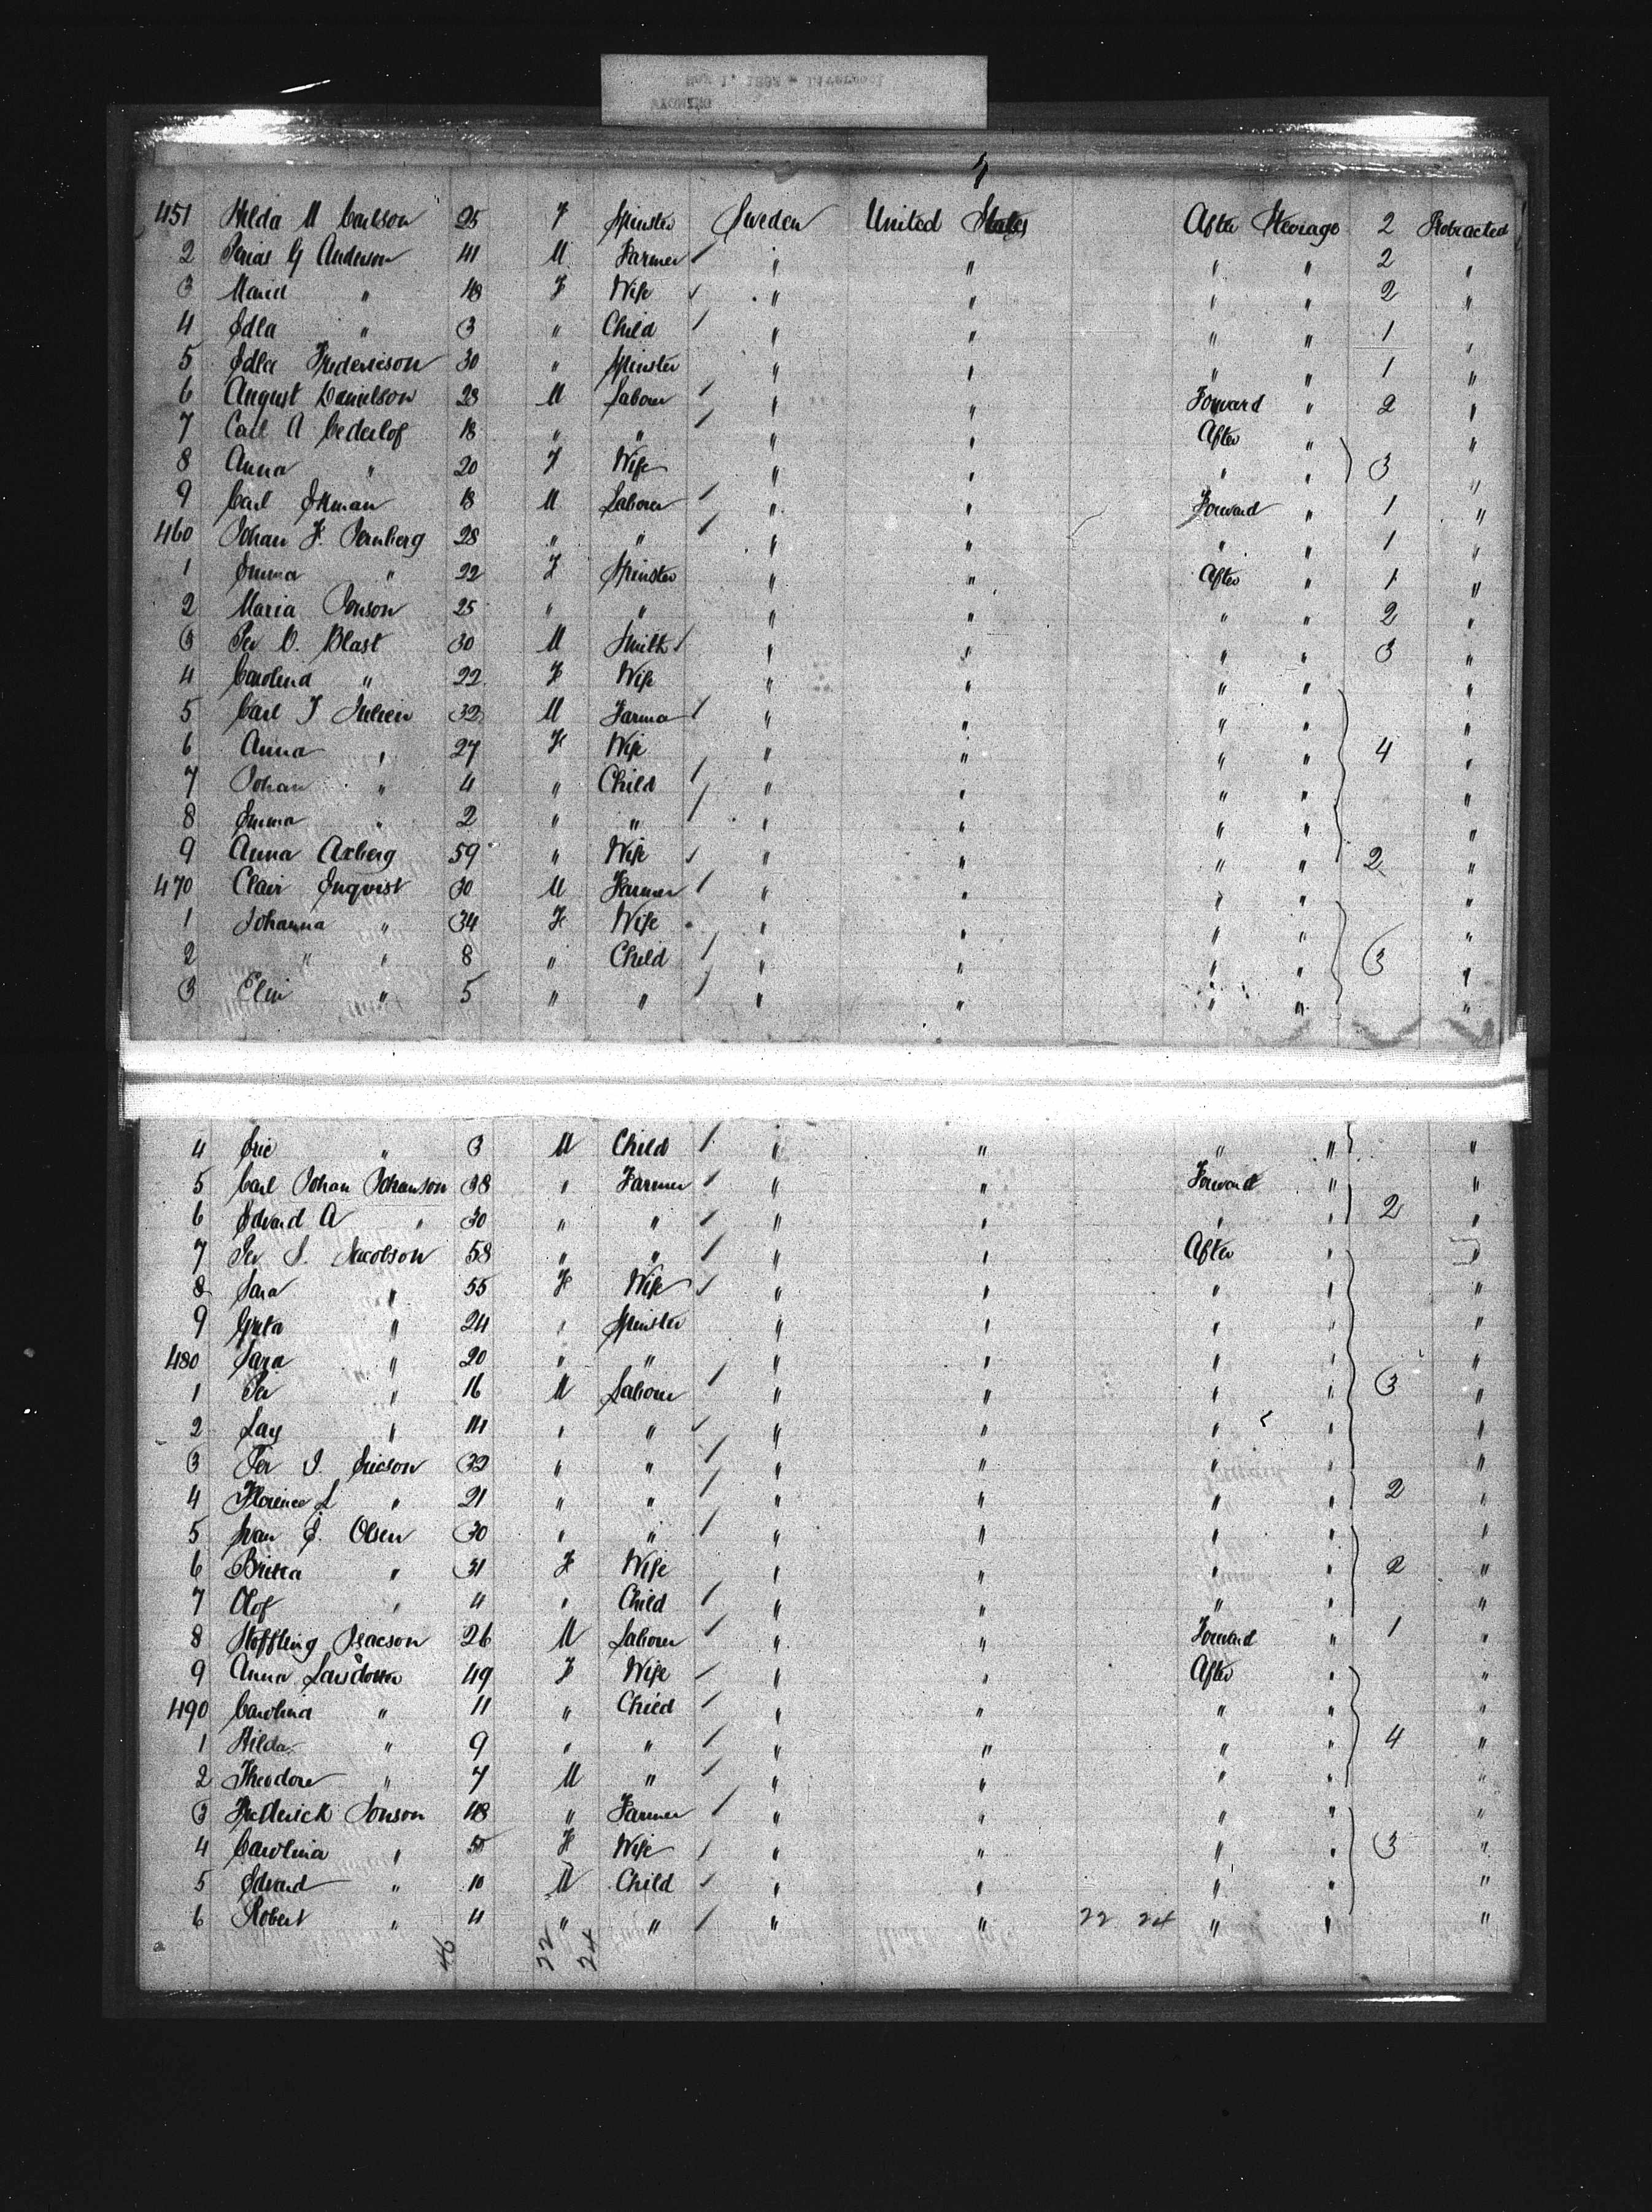 451 Hilda M Carlson 25 F Spinster Sweden United States After Steerage 2 Protracted
2 G Anderson 41 M Farmer " " " " 2 "
3 Maria " 48 F Wife " " " " 2 "
4 Edla " 3 " Child " " " " 1 "
5 Edla Frederickson 30 " Spinster " " " " 1 "
6 August Danielson 28 M Labour " " Forward " 2 "
7 Carl A Cederlof 18 " " " " After " "
8 Anna " 20 F Wife " " " " 3 "
9 Carl 18 M Laborer " " Forward " 1 "
460 Johan F. Jernberg 28 " " " " " " 1 "
1 Emma " 22 F Spinster " " After " 1 "
2 Maria Jonson 25 " " " " " " 2 "
3 Per O. Blast 30 M Smith " " " " 3 "
4 Carolina " 22 F Wife " " " " "
5 Carl J Julien 32 M Farmer " " " " "
6 Anna " 27 F Wife " " " " 4 "
7 Johan " 4 " Child " " " " "
8 Emma " 2 " " " " " " "
9 Anna Axberg 59 " Wife " " " " 2 "
470 Clair Enqvist 30 M Farmer " " " " "
1 Johanna " 34 F Wife " " " " "
2 " " 8 " Child " " " " 3 "
3 Elin " 5 " " " " " " "
4 Eric " 3 M Child " " " " "
5 Carl Johan Johanson 38 " Farmer " " Forward " "
6 Edvard A " 30 " " " " " " 2 "
7 Per S. Jacobson 58 " " " " After " "
8 Sara " 55 F Wife " " " " "
9 Greta " 24 " Spinster " " " " "
480 Sara " 20 " " " " " " "
1 Per " 16 M Labourer " " " " 3 "
2 Lars " 14 " " " " " " "
3 Per J. Ericson 32 " " " " " " "
4 Florence L " 21 " " " " " " 2 "
5 Ivan E. Olsen 30 " " " " " " "
6 Britta " 31 F Wife " " " " 2 "
7 Olof " 4 " Child " " " " "
8 Stoffling Isacson 26 M Laborer " " Forward " 1 "
9 Anna Larsdotter 49 F Wife " " After " "
490 Carolina " 11 " Child " " " " "
1 Hilda " 9 " " " " " " 4 "
2 Theodore " 7 M " " " " " "
3 Frederick Jonson 48 " Farmer " " " " "
4 Carolina " 55 F Wife " " " " 3 "
5 Edvard " 10 M Child " " " " "
6 Robert " 4 " " " " 22 24 " " "
46 22 24